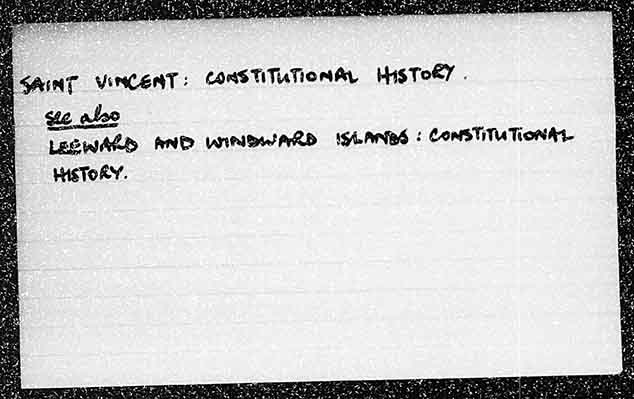 SAINT VINCENT: CONSTITUTIONAL HISTORY.
see also
LEEWARD AND WINDWARD ISLANDS: CONSTITUTIONAL
HISTORY.